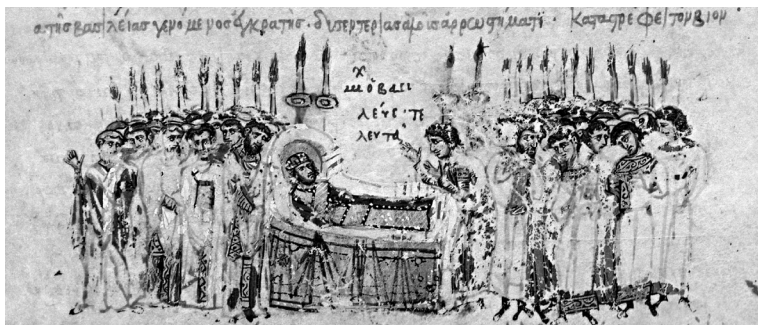 α τῆς βασιλείας γενόμενος ἐγκρατής · δυσεντερίας ἁλοὺς ἀρρωστήματι · καταστρέφει τὸν βίον
ὁ βασι
λεὺς · τε
λευτᾷ